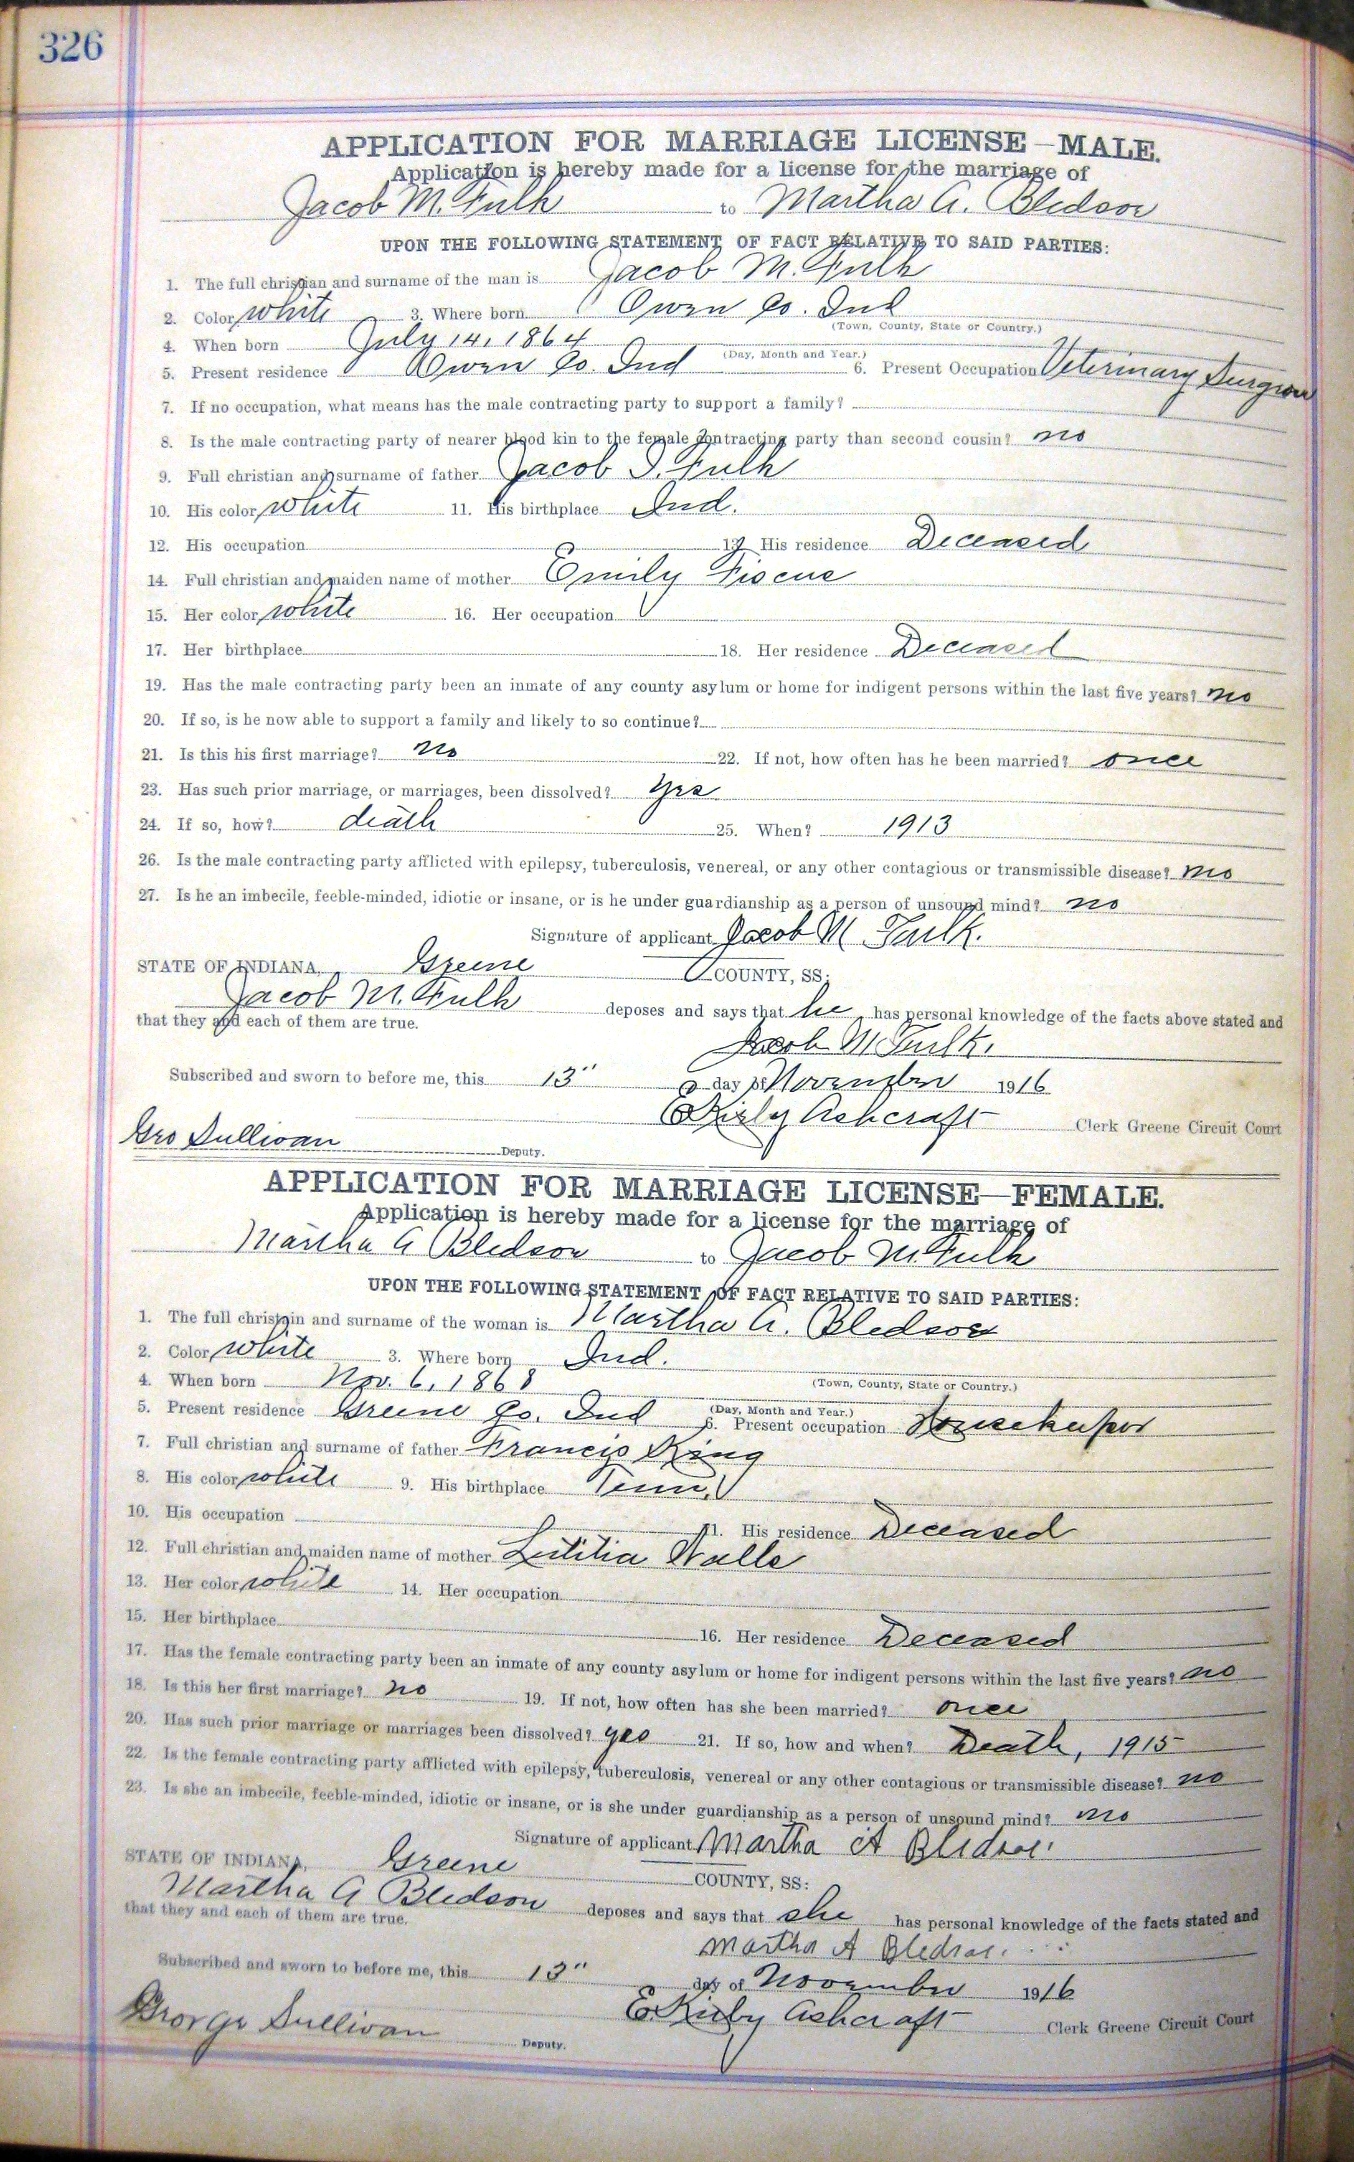 326
APPLICATION FOR MARRIAGE LICENSE—MALE.
Application is hereby made for a license for the marriage of
Jacob M. Fulk to Martha A. Bledsoe
UPON THE FOLLOWING STATEMENT OF FACT RELATIVE TO SAID PARTIES:
1. The full christian and surname of the man is Jacob M. Fulk
2. Color white 3. Where born Owen Co. Ind
(Town, County, State or Country.)
4. When born July 14, 1864
(Day, Month and Year.)
5. Present residence Owen Co. Ind 6. Present Occupation Veterinary Surgeon
7. If no occupation, what means has the male contracting party to support a family?
8. Is the male contracting party of nearer blood kin to the female contracting party than second cousin? no
9. Full christian and surname of father Jacob I. Fulk
10. His color white 11. His birthplace Ind.
12. His occupation 13. His residence Deceased
14. Full christian and maiden name of mother Emily Fiscus
15. Her color white 16. Her occupation
17. Her birthplace 18. Her residence Deceased
19. Has the male contracting party been an inmate of any county asylum or home for indigent persons within the last five years? no
20. If so, is he now able to support a family and likely to so continue?
21. Is this his first marriage? no 22. If not, how often has he been married? once
23. Has such prior marriage, or marriages, been dissolved? yes
24. If so, how? death 25. When? 1913
26. Is the male contracting party afflicted with epilepsy, tuberculosis, venereal, or any other contagious or transmissible disease? no
27. Is he an imbecile, feeble-minded, idiotic or insane, or is he under guardianship as a person of unsound mind? no
Signature of applicant Jacob M Faulk.
STATE OF INDIANA, Greene COUNTY, SS:
Jacob M. Fulk deposes and says that he has personal knowledge of the facts above stated and
that they and each of them are true.
Jacob M Faulk.
Subscribed and sworn to before me, this 13" day of November 1916
E Kirby Ashcraft Clerk Greene Circuit Court
Geo Sullivan Deputy.
APPLICATION FOR MARRIAGE LICENSE—FEMALE.
Application is hereby made for a license for the marriage of
Martha A Bledsoe to Jacob M. Fulk
UPON THE FOLLOWING STATEMENT OF FACT RELATIVE TO SAID PARTIES:
1. The full christain and surname of the woman is Martha A. Bledsoe
2. Color white 3. Where born Ind.
(Town, County, State or Country.)
4. When born Nov. 6, 1868
(Day, Month and Year.)
5. Present residence Greene Co. Ind 6. Present occupation Housekeeper
7. Full christian and surname of father Francis King
8. His color white 9. His birthplace Tenn.
10. His occupation 11. His residence Deceased
12. Full christian and maiden name of mother Letitia Walls
13. Her color white 14. Her occupation
15. Her birthplace 16. Her residence Deceased
17. Has the female contracting party been an inmate of any county asylum or home for indigent persons within the last five years? no
18. Is this her first marriage? no 19. If not, how often has she been married? once
20. Has such prior marriage or marriages been dissolved? yes 21. If so, how and when? Death, 1915
22. Is the female contracting party afflicted with epilepsy, tuberculosis, venereal or any other contagious or transmissible disease? no
23. Is she an imbecile, feeble-minded, idiotic or insane, or is she under guardianship as a person of unsound mind? no
Signature of applicant Martha A Bledsoe.
STATE OF INDIANA, Greene COUNTY, SS:
Martha A Bledsoe deposes and says that she has personal knowledge of the facts stated and
that they and each of them are true.
Martha A Bledsoe.
Subscribed and sworn to before me, this 13" day of November 1916
E. Kirby Ashcraft Clerk Greene Circuit Court
George Sullivan Deputy.